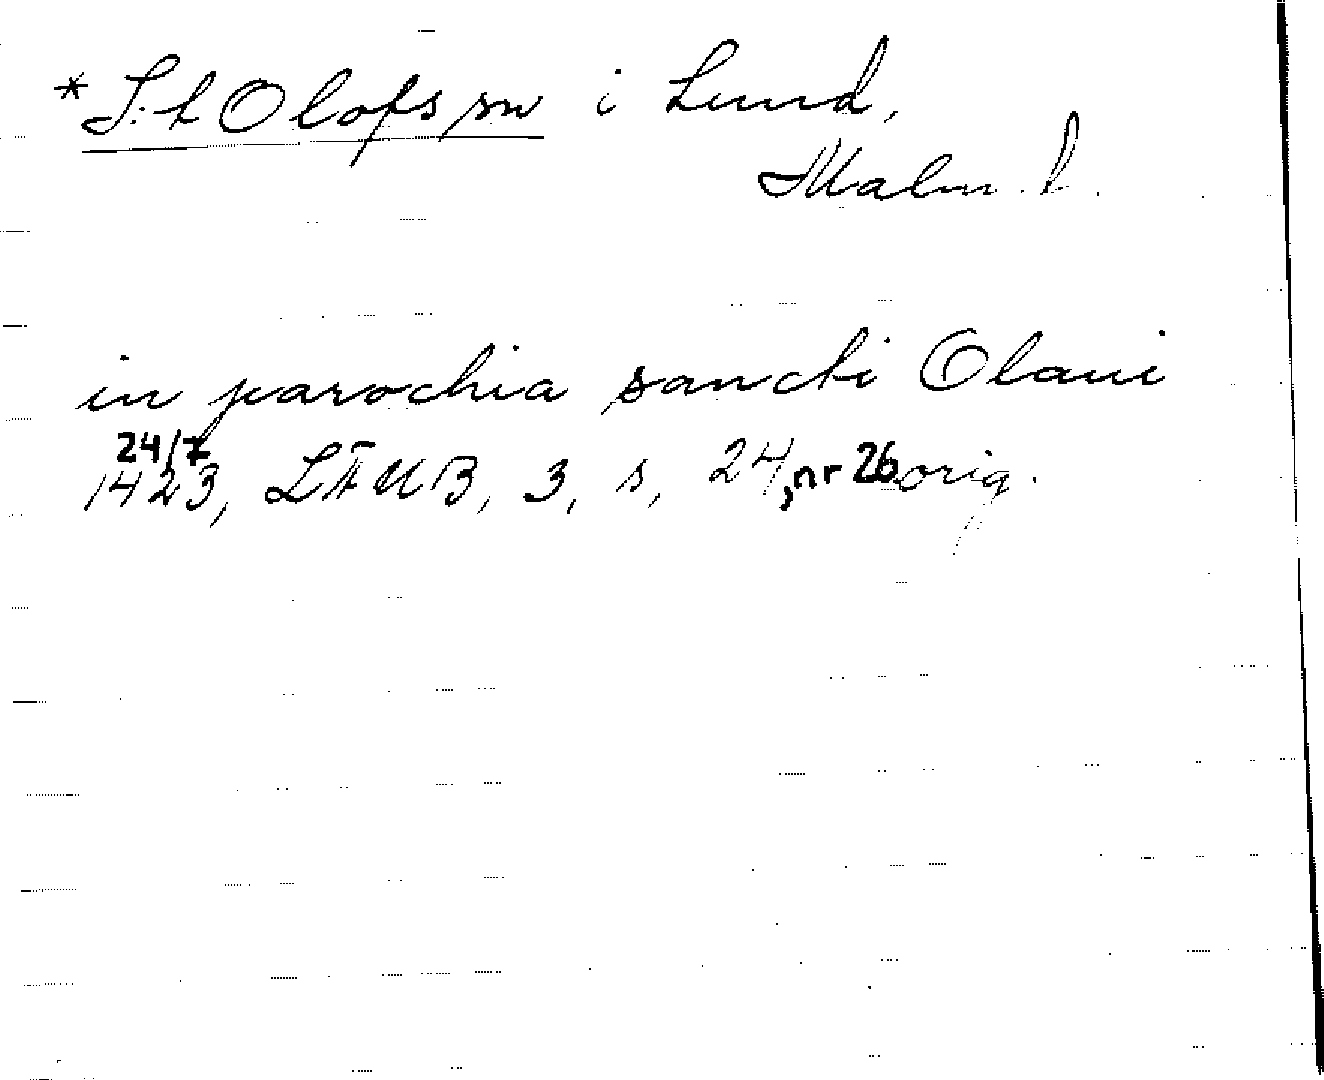 * S:t Olofs sn i Lund,
Malm. l.
in parochia sancti Olaui
24/7
1423, LÄUB, 3, s, 24, nr 26 orig.